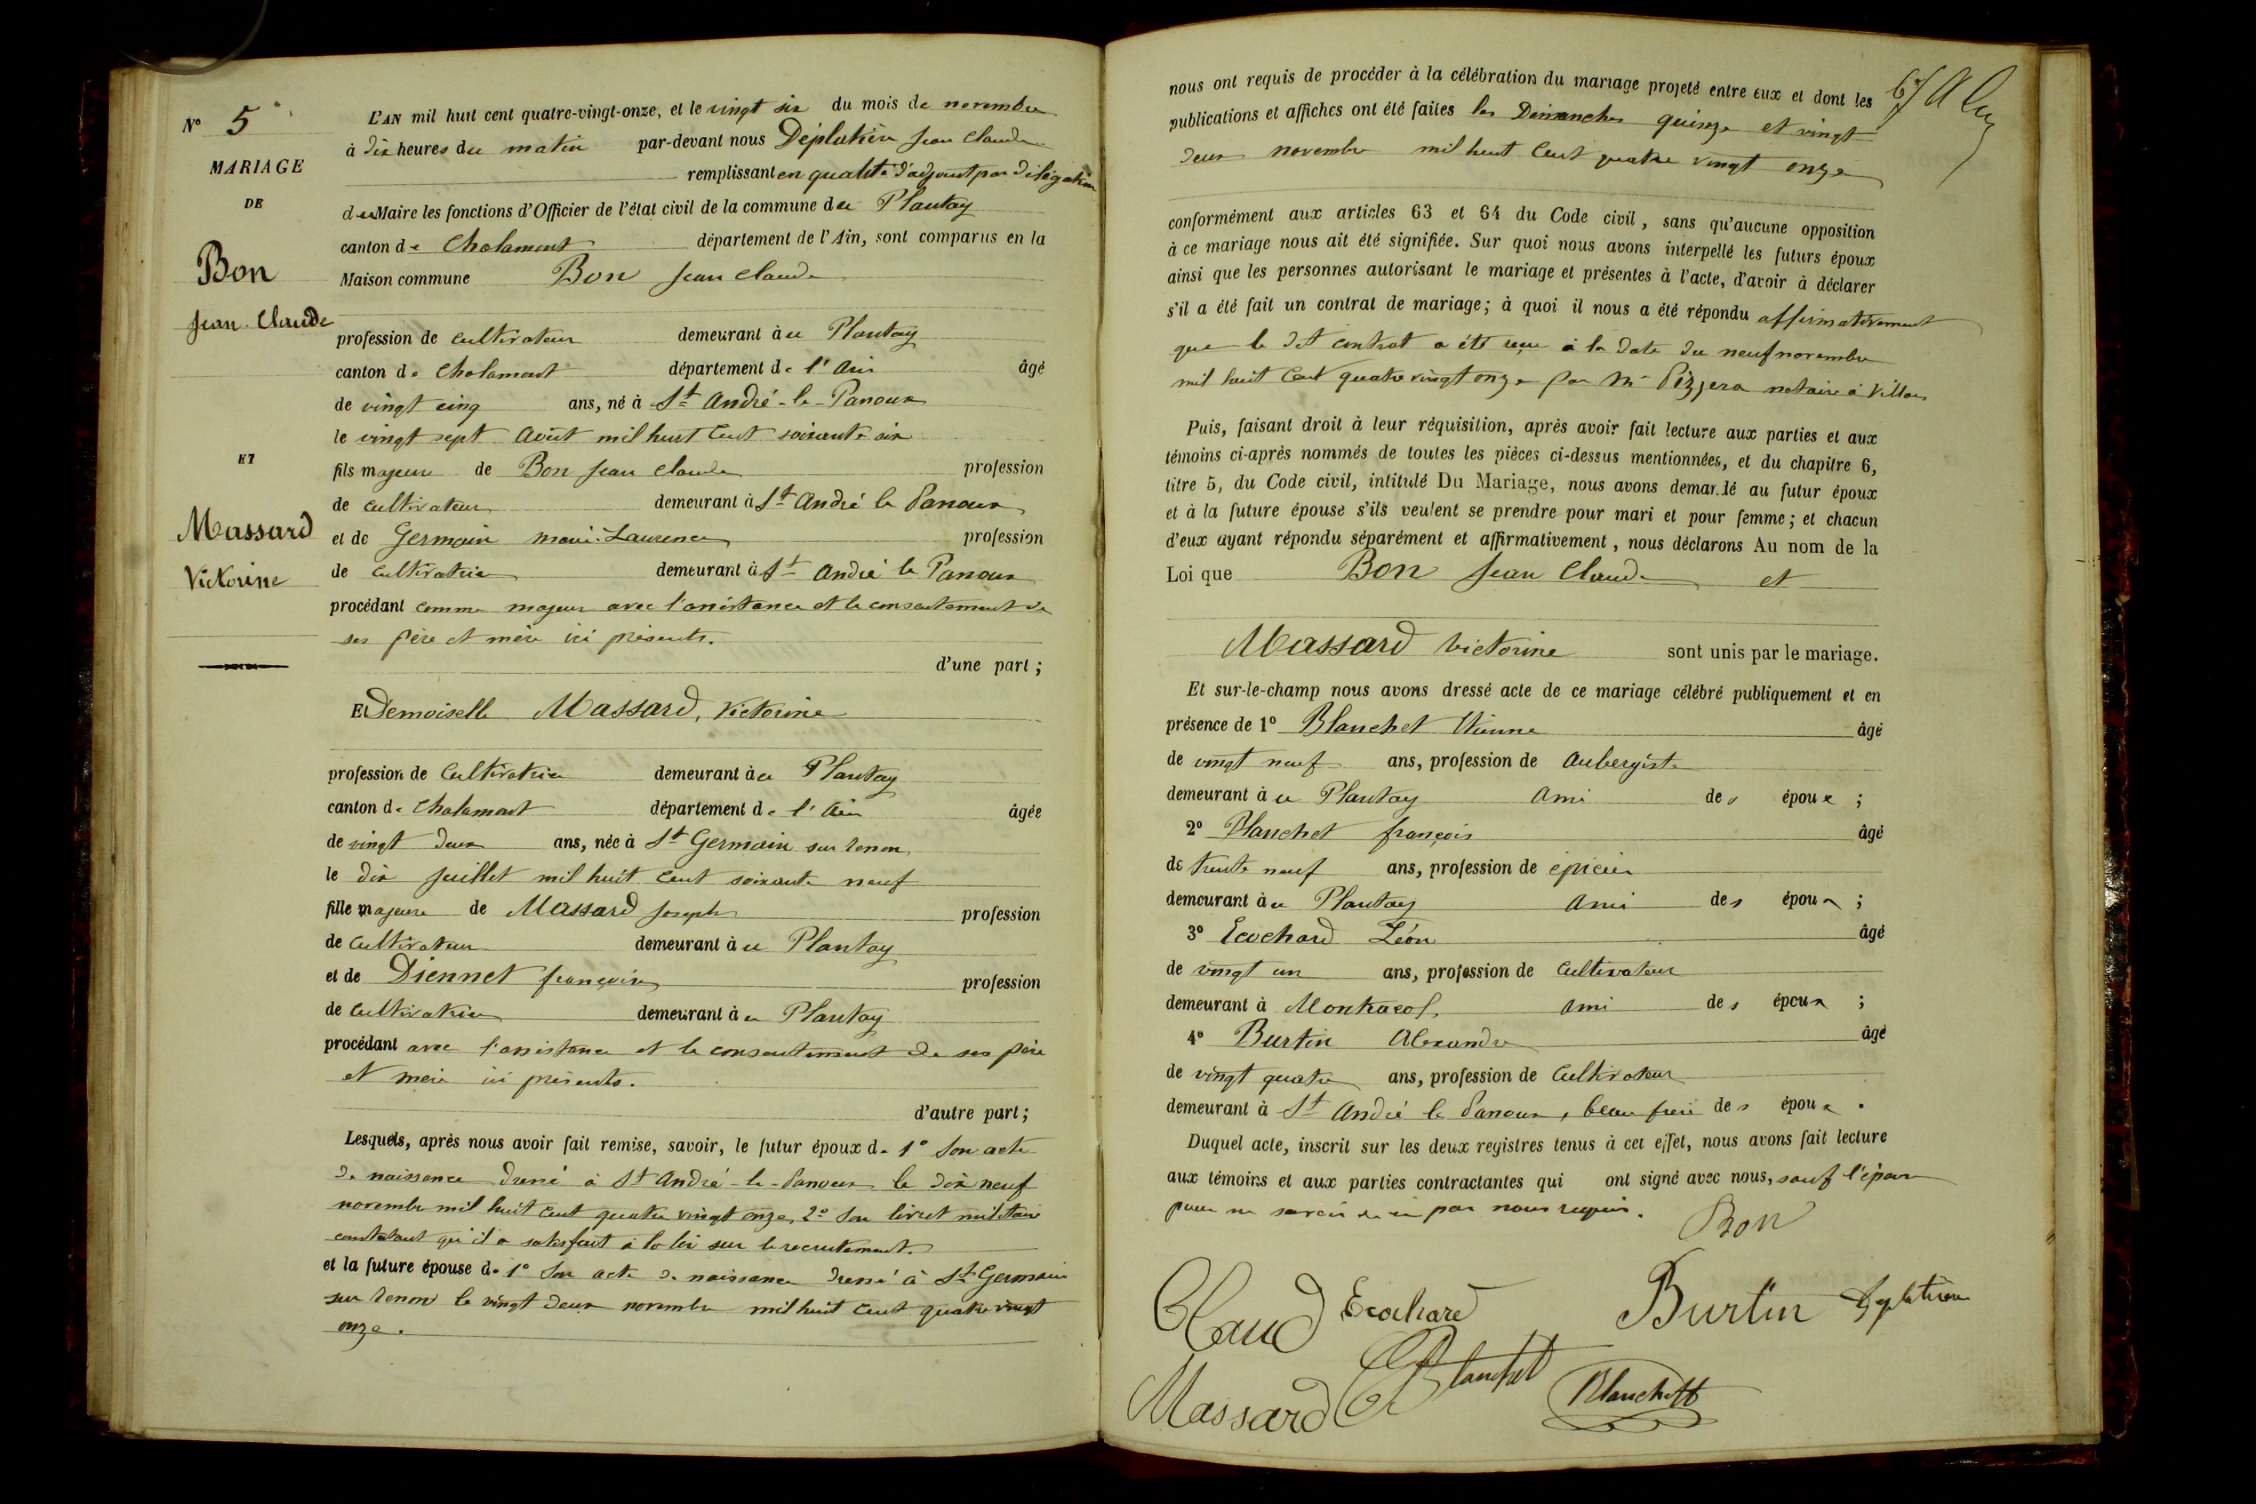 N° 5
MARIAGE
DE
Bon
Jean Claude
ET
Massard
Victorine
L'AN mil huit cent quatre-vingt-onze, et le vingt six du mois de novembre
à dix heures du matin par-devant nous Déplatière Jean Claude
remplissant en qualité d'adjoint par délégation
du Maire les fonctions d'Officier de l'état civil de la commune du Plantay
canton de Chalamont département de l'Ain, sont comparus en la
Maison commune Bon Jean Claude
profession de cultivateur demeurant au Plantay
canton de Chalamont département de l'Ain âgé
de vingt cinq ans, né à St André-le-Panoux
le vingt sept Août mil huit cent soixante six
fils majeur de Bon Jean Claude profession
de cultivateur demeurant à St André le Panoux
et de Germain Marie-Laurence profession
de cultivatrice demeurant à St André le Panoux
procédant comme majeur avec l'assistance et le consentement de
ses père et mère ici présents.
d'une part ;
Et Demoiselle Massard, Victorine
profession de cultivatrice demeurant au Plantay
canton de Chalamont département de l'Ain âgée
de vingt deux ans, née à St Germain sur renon
le dix Juillet mil huit cent soixante neuf
fille majeure de Massard Joseph profession
de cultivateur demeurant au Plantay
et de Diennet françoise profession
de cultivatrice demeurant au Plantay
procédant avec l'assistance et le consentement de ses père
et mère ici présents.
d'autre part ;
Lesquels, après nous avoir fait remise, savoir, le futur époux de 1° Son acte
de naissance dressé à St André-le-Panoux le dix neuf
novembre mil huit cent quatre vingt onze, 2° Son livret militaire
constatant qu'il a satisfait à la loi sur le recrutement.
et la future épouse de 1° Son acte de naissance dressé à St Germain
sur renon le vingt deux novembre mil huit cent quatre vingt
onze.
nous ont requis de procéder à la célébration du mariage projeté entre eux et dont les
publications et affiches ont été faites les Dimanches quinze et vingt
deux novembre mil huit cent quatre vingt onze
conformément aux articles 63 et 64 du Code civil, sans qu'aucune opposition
à ce mariage nous ait été signifiée. Sur quoi nous avons interpellé les futurs époux
ainsi que les personnes autorisant le mariage et présentes à l'acte, d'avoir à déclarer
s'il a été fait un contrat de mariage ; à quoi il nous a été répondu affirmativement
que le dit contrat a été reçu à la date du neuf novembre
mil huit cent quatre vingt onze par Me Pizzera notaire à Villars
Puis, faisant droit à leur réquisition, après avoir fait lecture aux parties et aux
témoins ci-après nommés de toutes les pièces ci-dessus mentionnées, et du chapitre 6,
titre 5, du Code civil, intitulé Du Mariage, nous avons demandé au futur époux
et à la future épouse s'ils veulent se prendre pour mari et pour femme ; et chacun
d'eux ayant répondu séparément et affirmativement, nous déclarons Au nom de la
Loi que Bon Jean Claude et
Massard Victorine sont unis par le mariage.
Et sur-le-champ nous avons dressé acte de ce mariage célébré publiquement et en
présence de 1° Blanchet Etienne âgé
de vingt neuf ans, profession de aubergiste
demeurant à u Plantay ami des époux ;
2° Blanchet françois âgé
de trente neuf ans, profession de épicier
demeurant au Plantay ami des époux ;
3° Ecochard Léon âgé
de vingt un ans, profession de cultivateur
demeurant à Montracol, ami des époux ;
4° Burtin Alexandre âgé
de vingt quatre ans, profession de cultivateur
demeurant à St André le Panoux, beau frère des époux.
Duquel acte, inscrit sur les deux registres tenus à cet effet, nous avons fait lecture
aux témoins et aux parties contractantes qui ont signé avec nous, sauf
pour ne savoir de ce par nous requis.
Bon
Ecochard
Burtin
Déplatière
Massard
Blanchet
Blanchet